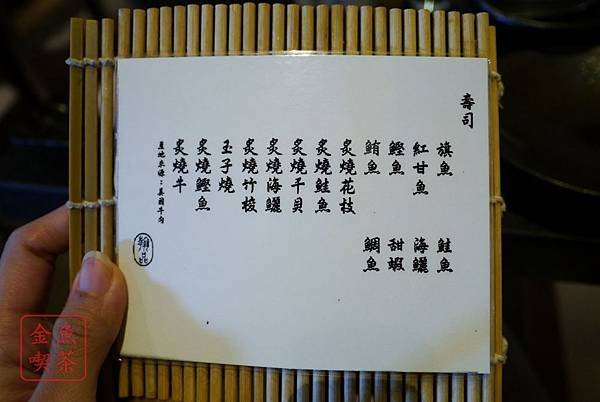 壽司
旗魚
鮭魚
紅甘魚
海鱺
鰹魚
甜蝦
鮪魚
鯛魚
炙燒花枝
炙燒鮭魚
炙燒干貝
炙燒海鱺
炙燒竹梭
玉子燒
炙燒鰹魚
炙燒牛
產地來源：美國牛肉
金魚
喫茶